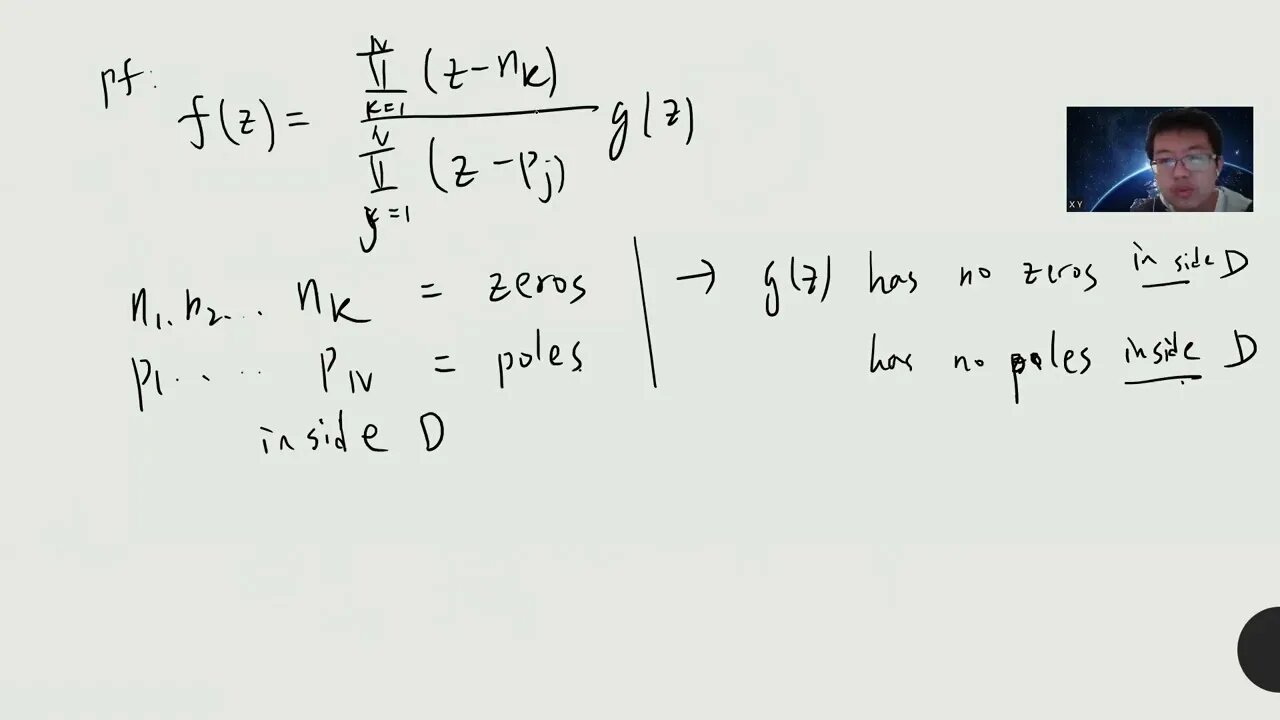 pf:
f(z) = \frac{\prod_{k=1}^{N} (z-n_k)}{\prod_{j=1}^{N} (z-p_j)} g(z)
n_1, n_2, ... n_k = zeros
p_1 ..... p_N = poles
inside D
→ g(z) has no zeros inside D
has no poles inside D
X Y